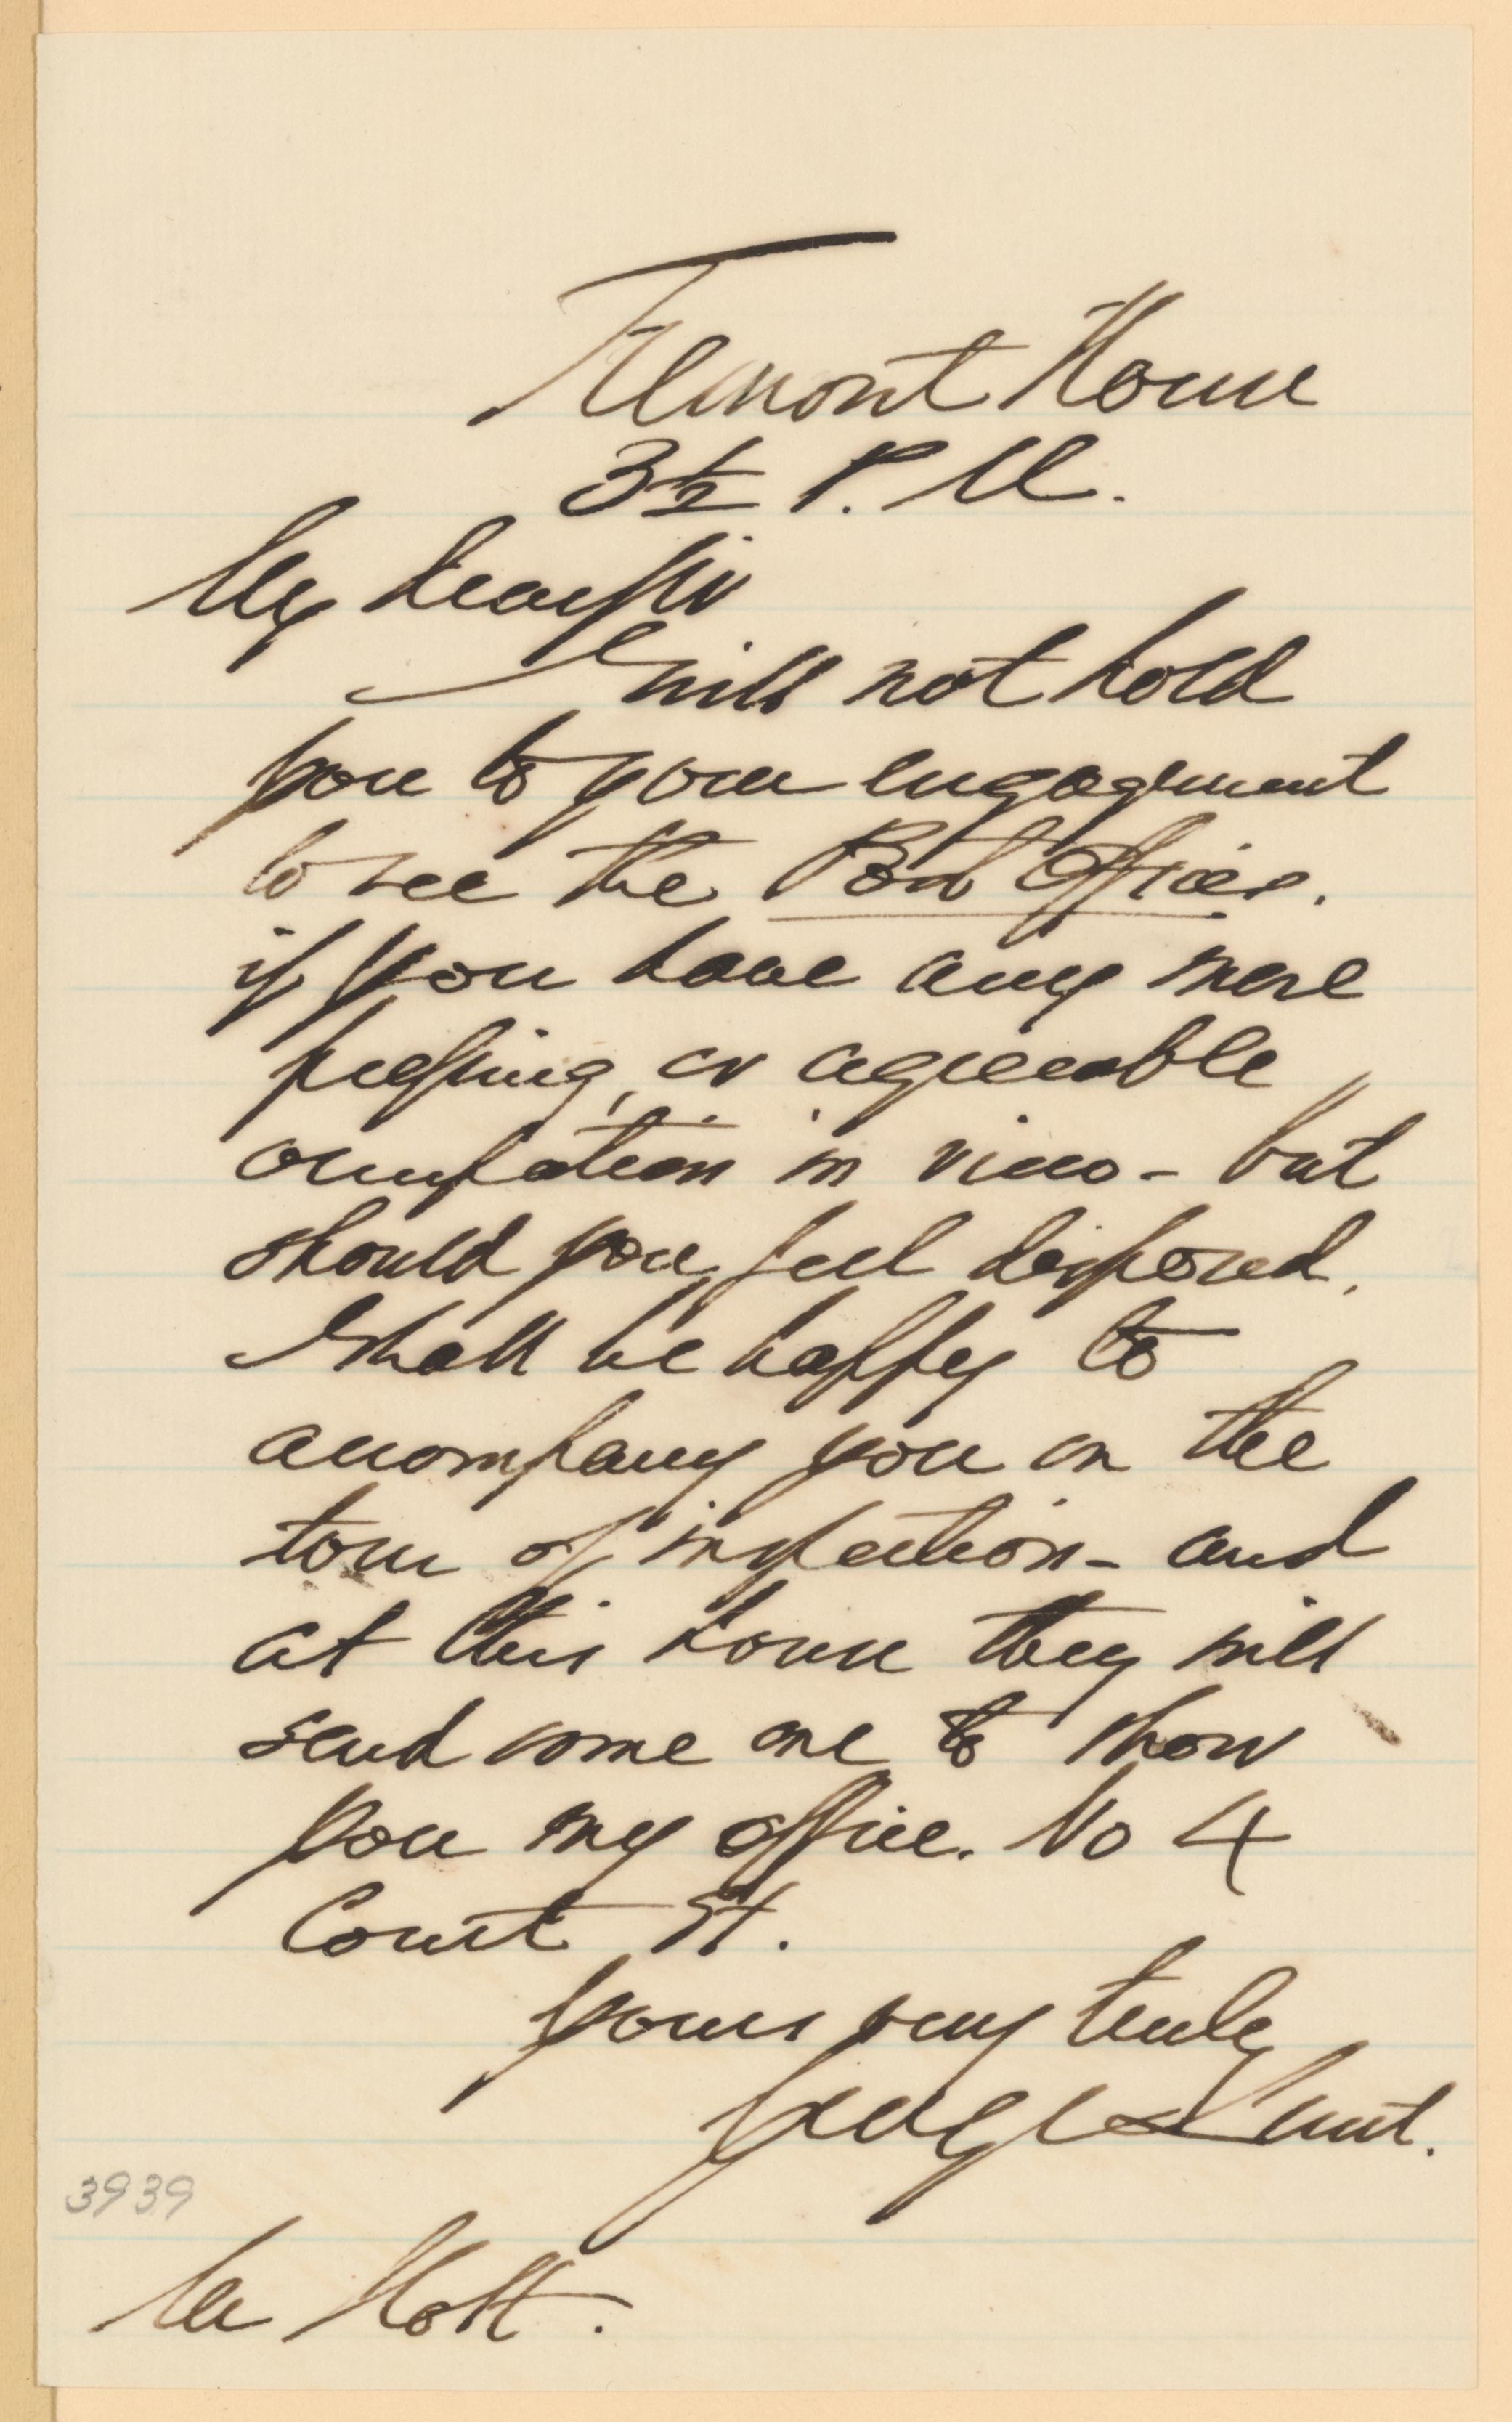 Tremont House
3½ P.M.
My dear Sir
I will not hold
you to your engagement
to see the Post Office.
if you have any more
pressing, or agreeable
occupation in view - but
should you feel disposed,
I shall be happy to
accompany you on the
tour of inspection - and
at this house they will
send some one to show
you my office. No 4
Court St.
Yours very truly
George Lunt.
3939
Mr Holt.